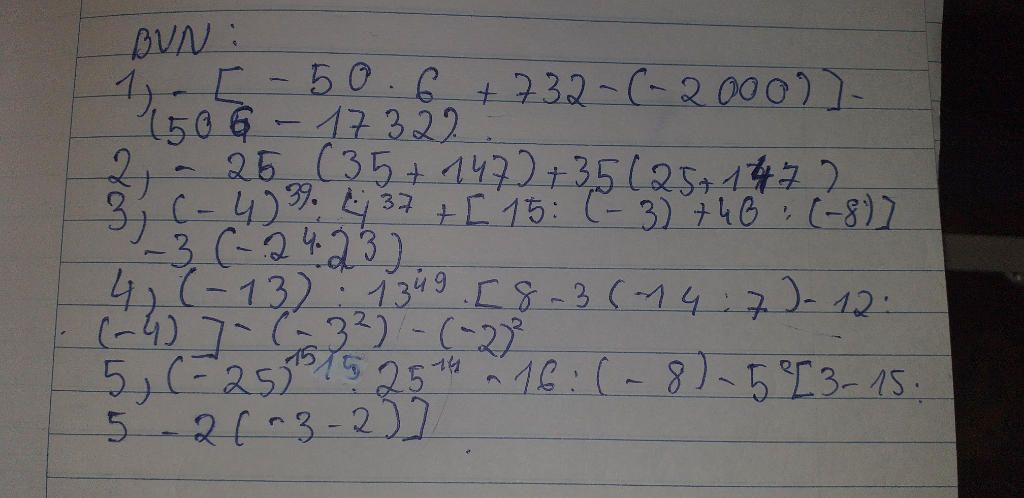 BVN :
1, - [ - 50 . 6 + 732 - (- 2000) ] -
(506 - 1732).
2, - 25 (35 + 147) + 35 (25 + 147)
3, (- 4)³⁹ : 4³⁷ + [ 15 : (- 3) + 48 : (-8) ]
- 3 (- 2⁴ : 23)
4, (- 13) : 13⁴⁹ . [ 8 - 3 (-14 : 7) - 12 :
(-4) ] - (- 3²) - (-2)²
5, (- 25)¹⁵ : 25¹⁴ - 16 : (- 8) - 5² [ 3 - 15 :
5 - 2 ( - 3 - 2) ]